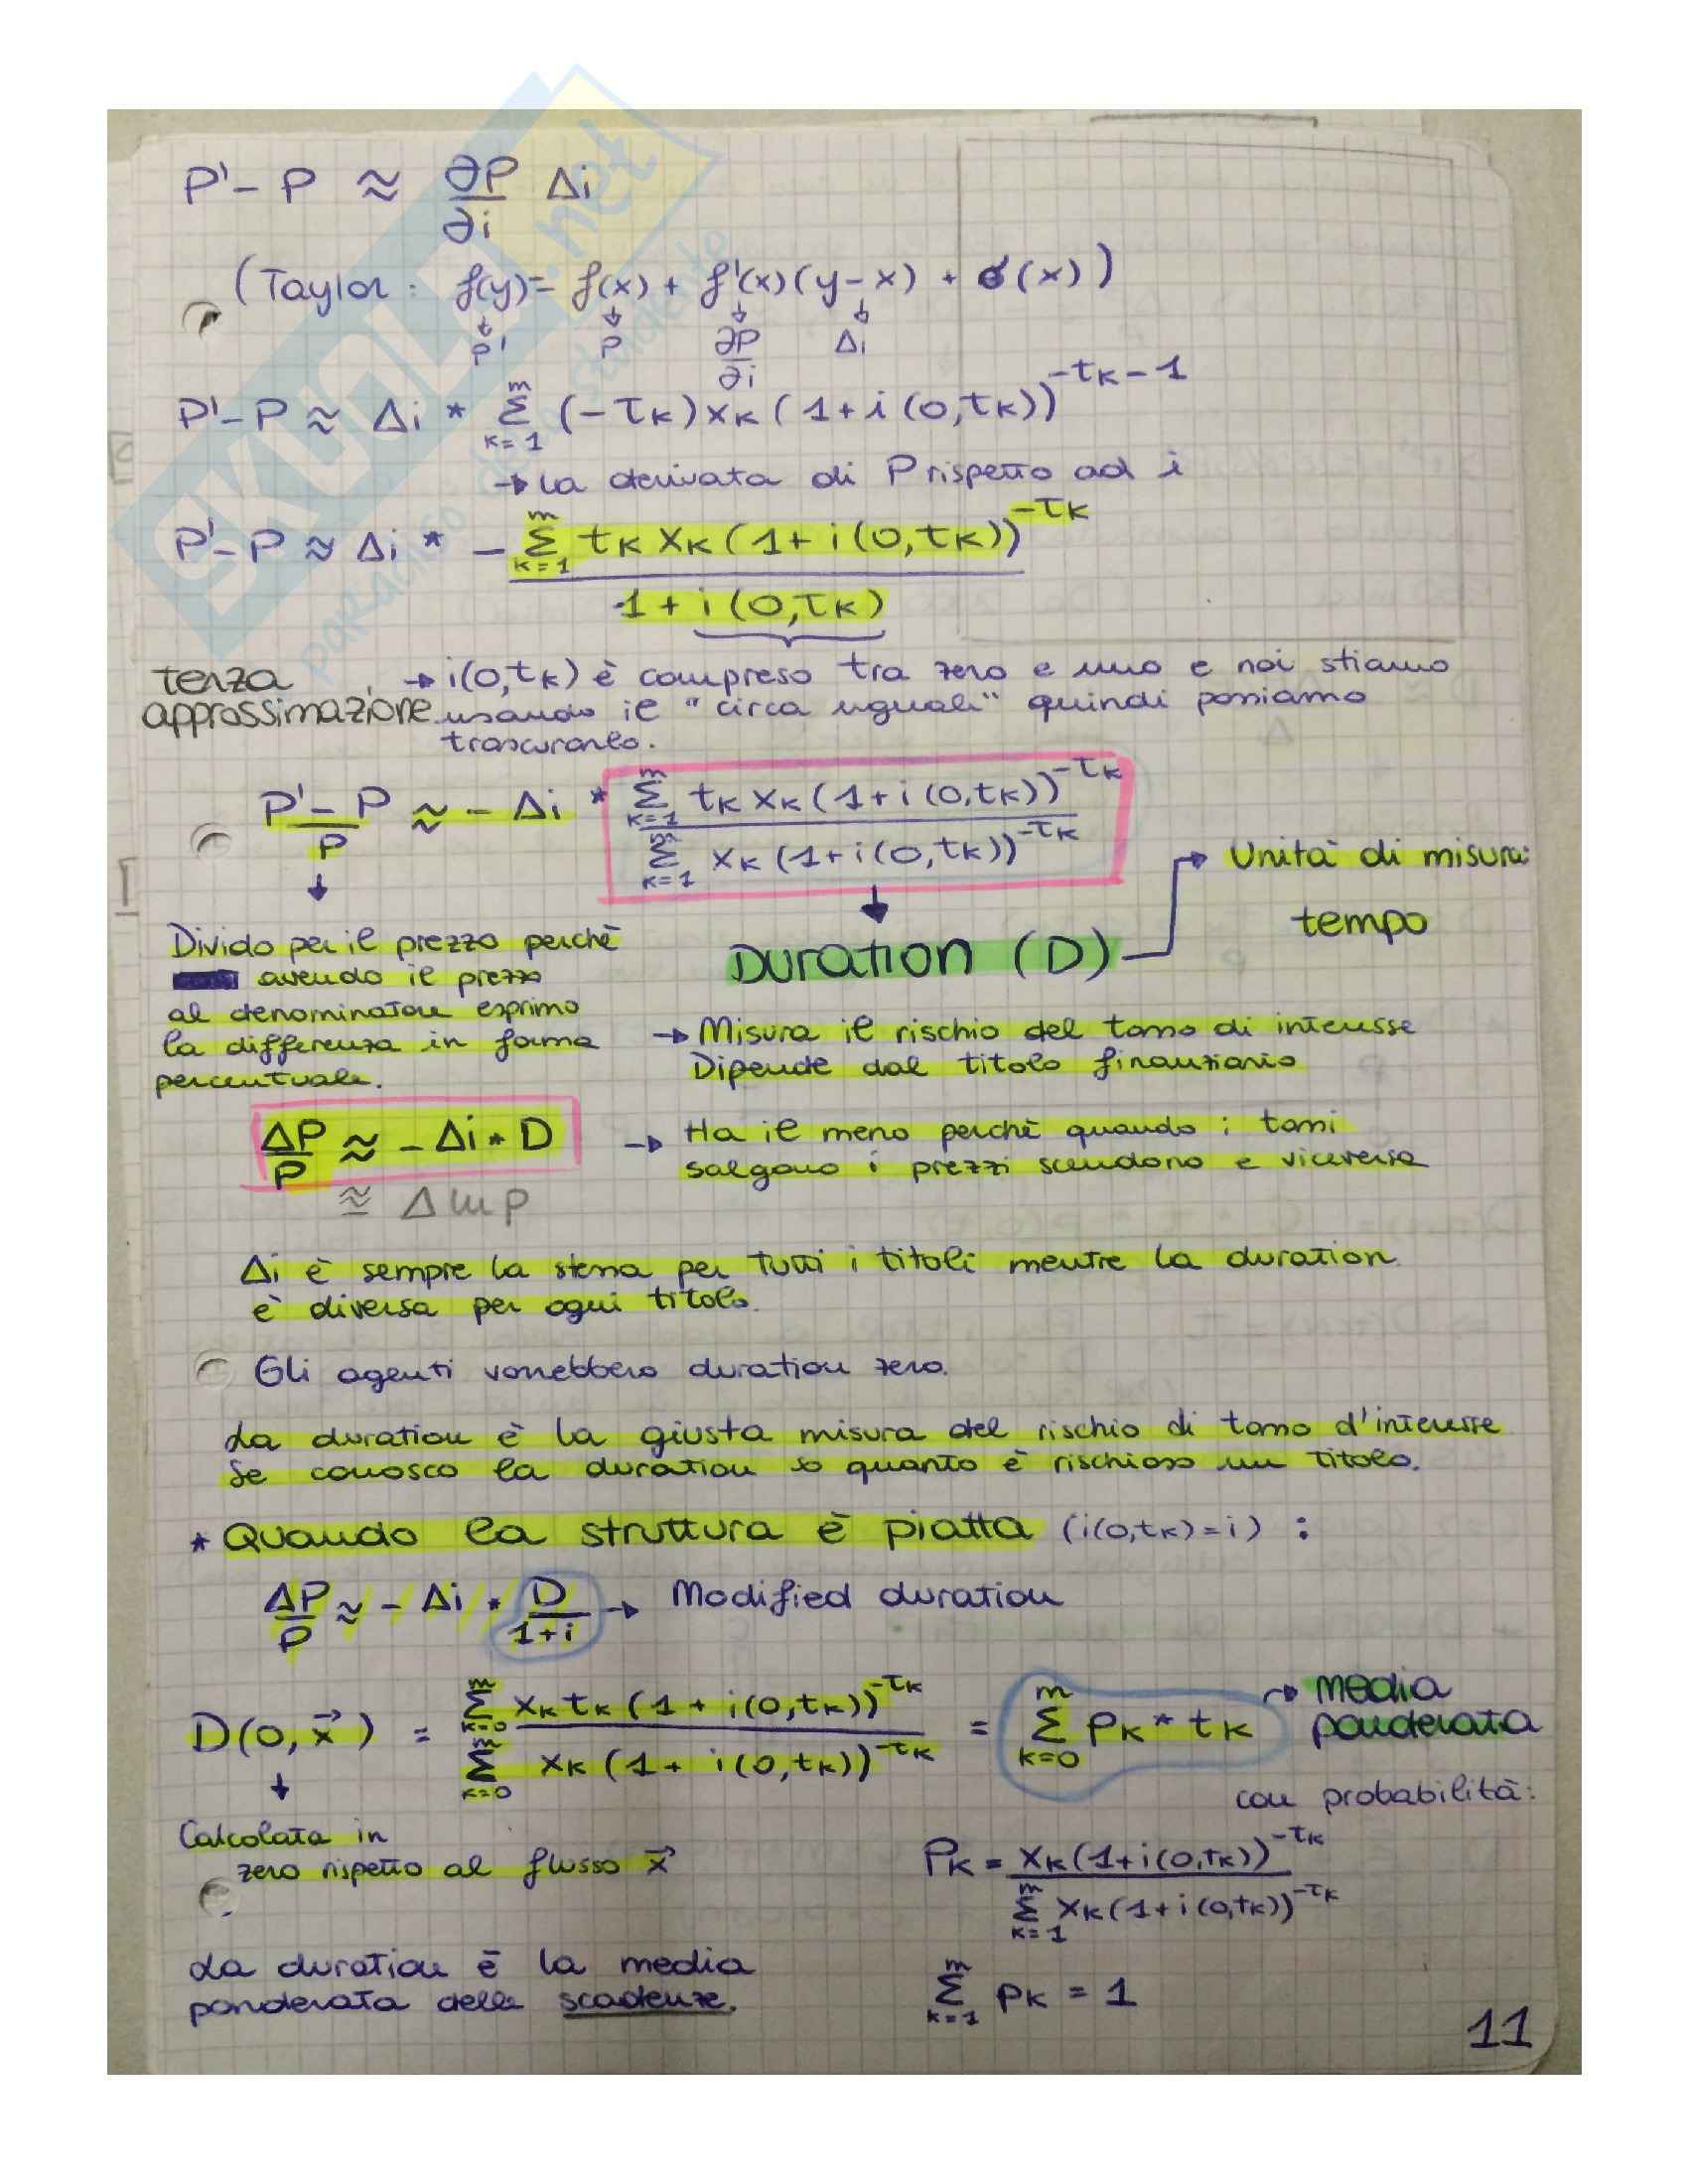 P'- P ≈ ∂P/∂i Δi
(Taylor: f(y)= f(x) + f'(x)(y-x) + σ(x))
↓ P' ↓ P ↓ ∂P/∂i ↓ Δi
P'-P ≈ Δi * Σ_{k=1}^{m} (-tk)xk(1+i(0,tk))^{-tk-1}
→ la derivata di P rispetto ad i
P'-P ≈ Δi * - Σ_{k=1}^{m} tk xk(1+i(0,tk))^{-tk} / 1+i(0,tk)
terza approssimazione
→ i(0,tk) è compreso tra zero e uno e noi stiamo
usando il "circa uguali" quindi possiamo
trascurarlo.
P'-P/P ≈ - Δi * Σ_{k=1}^{m} tk xk(1+i(0,tk))^{-tk} / Σ_{k=1}^{m} xk(1+i(0,tk))^{-tk}
↓
→ Unità di misura:
tempo
Divido per il prezzo perchè
avendo il prezzo
al denominatore esprimo
la differenza in forma
percentuale.
↓
Duration (D)
→ Misura il rischio del tasso di interesse
Dipende dal titolo finanziario
ΔP/P ≈ - Δi * D
≅ Δ ln P
→ Ha il meno perchè quando i tassi
salgono i prezzi scendono e viceversa
Δi è sempre la stessa per tutti i titoli mentre la duration
è diversa per ogni titolo.
Gli agenti vorrebbero duration zero.
La duration è la giusta misura del rischio di tasso d'interesse
Se conosco la duration so quanto è rischioso un titolo.
* Quando la struttura è piatta (i(0,tk)=i) :
ΔP/P ≈ - Δi * D/1+i → Modified duration
D(0,x⃗) = Σ_{k=0}^{m} xk tk(1+i(0,tk))^{-tk} / Σ_{k=0}^{m} xk(1+i(0,tk))^{-tk} = Σ_{k=0}^{m} Pk * tk → media
ponderata
con probabilità:
↓
Calcolata in
zero rispetto al flusso x⃗
Pk = xk(1+i(0,tk))^{-tk} / Σ_{k=1}^{m} xk(1+i(0,tk))^{-tk}
La duration è la media
ponderata delle scadenze.
Σ_{k=1}^{m} Pk = 1
11
SKUOLA.net
paradiso dello studente